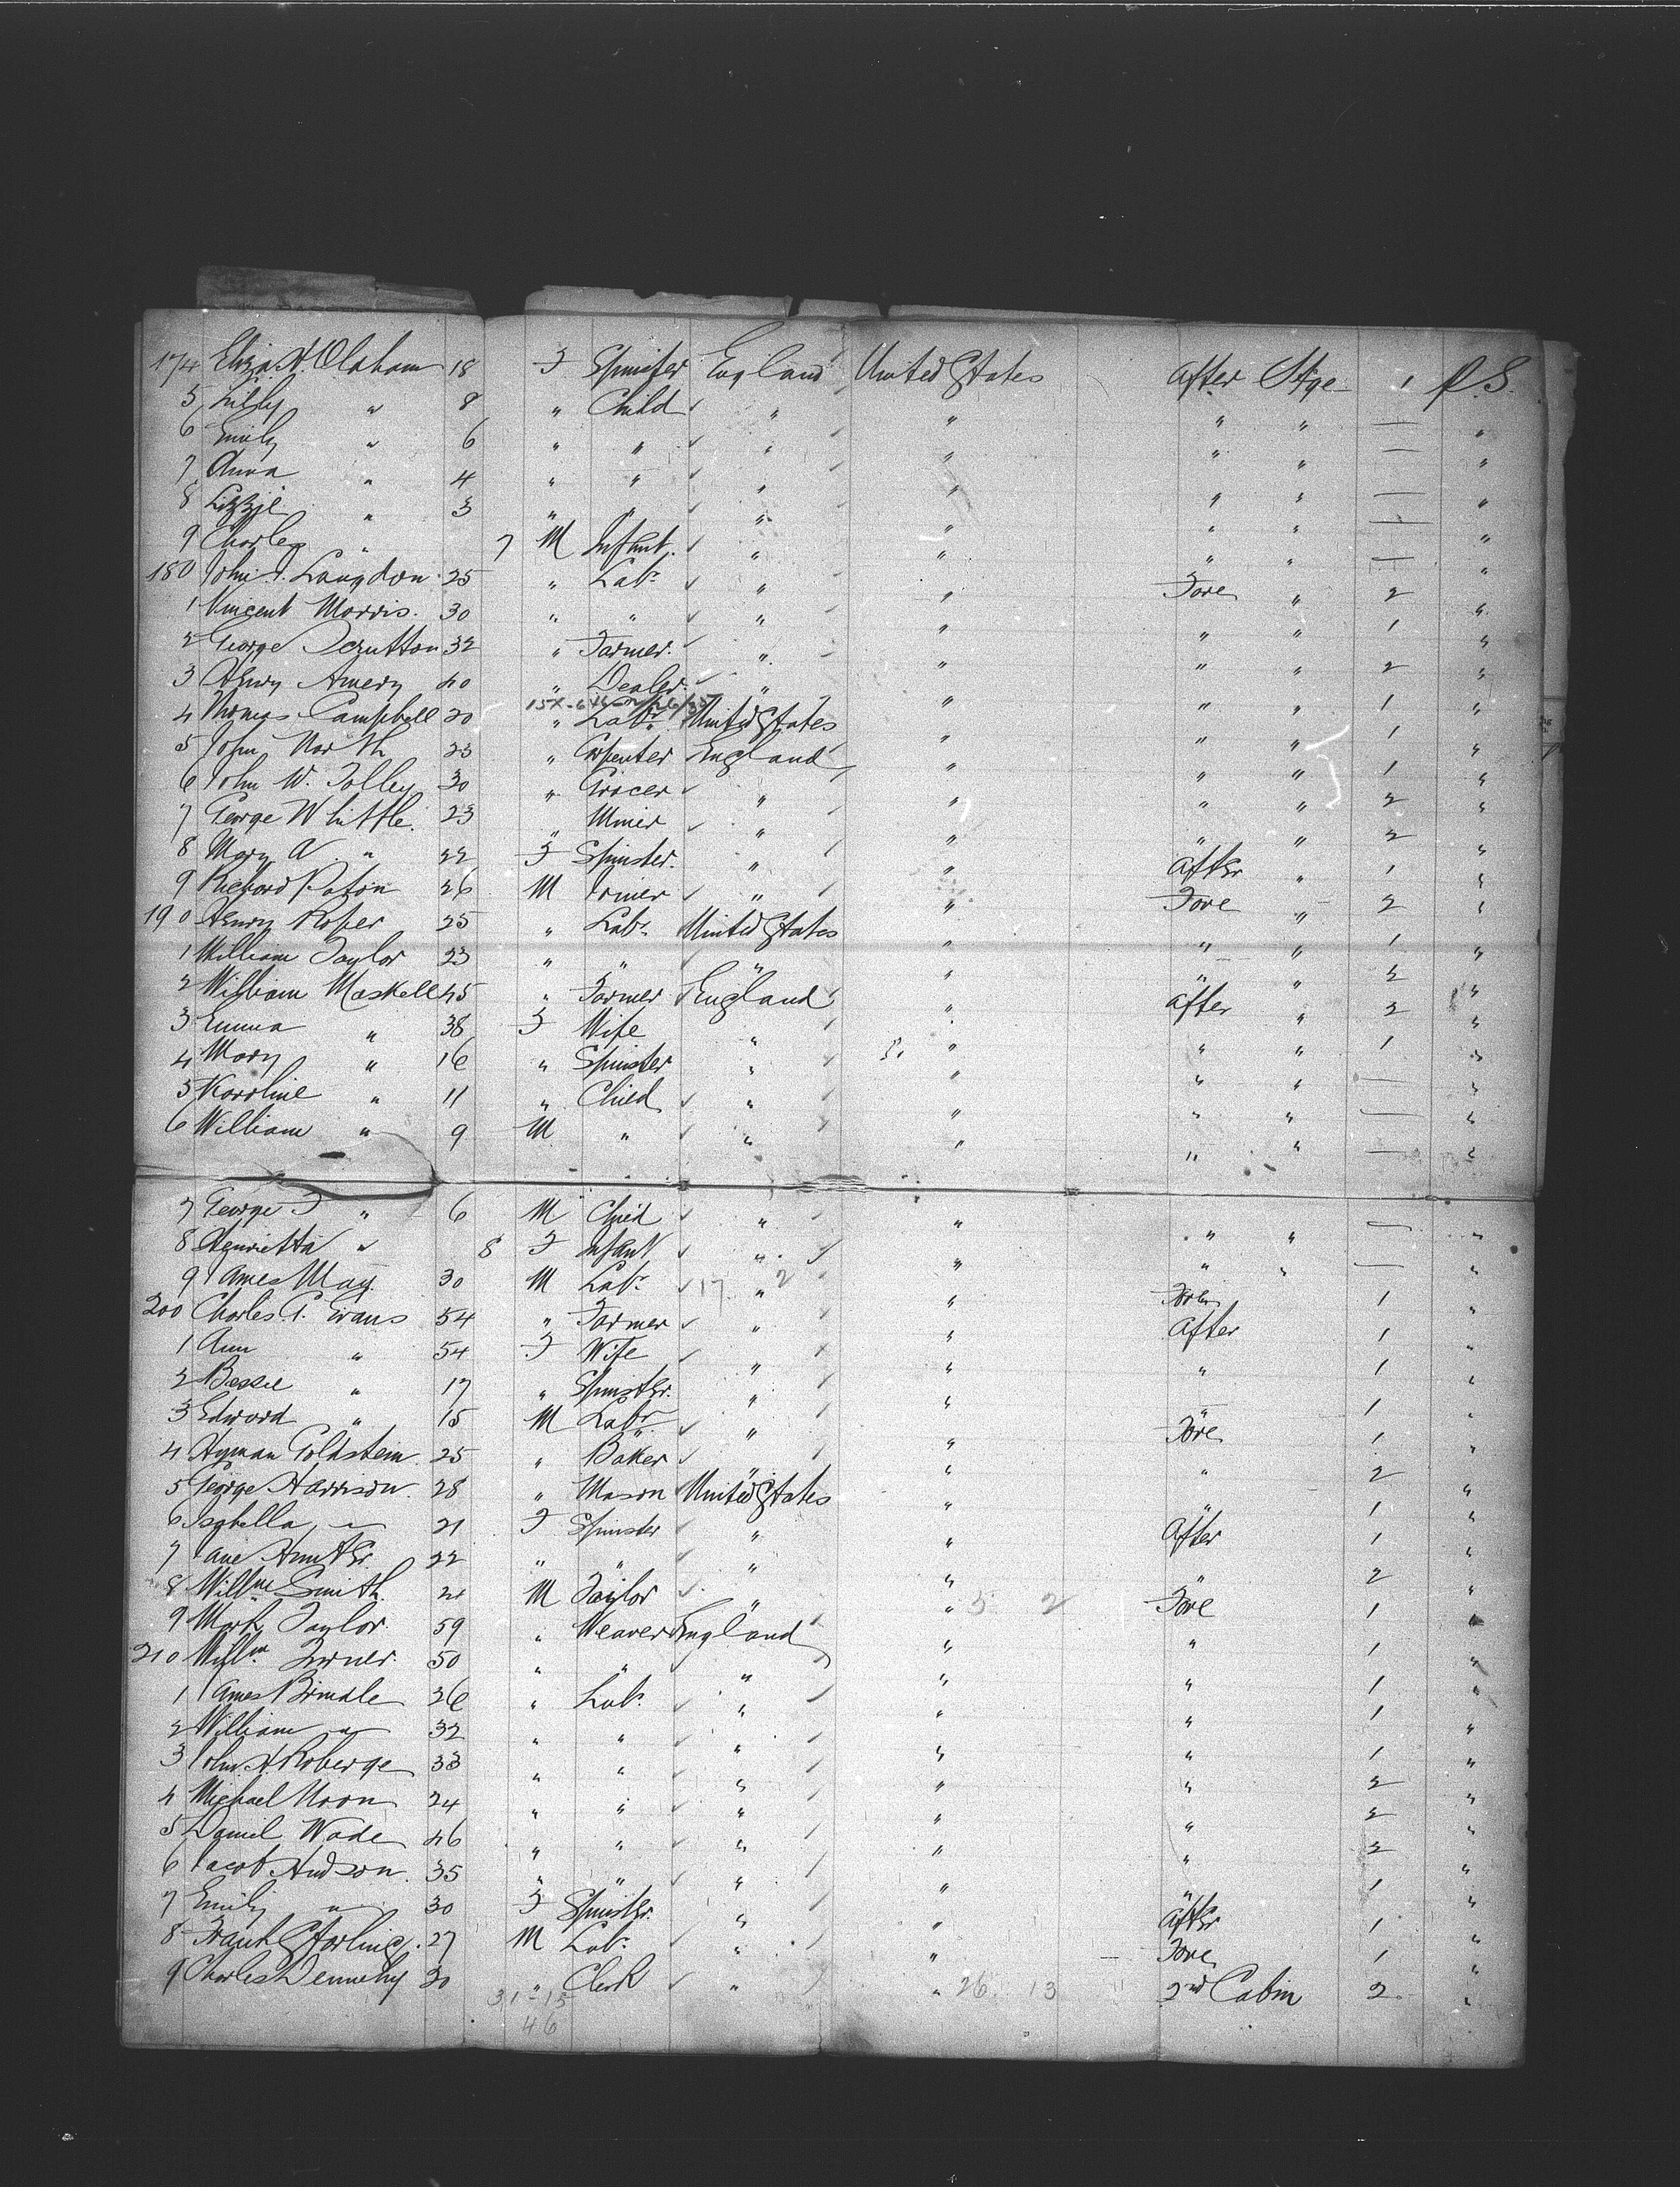 174 Eliza A. Oldham 18 F Spinster England United States After Stge 1 P.S.
5 Lilly " 8 " Child " " " " — "
6 Emily " 6 " " " " " " — "
7 Anna " 4 " " " " " " — "
8 Lizzie " 3 " " " " " " — "
9 Charles " 7 M Infant. " " " " — "
180 John J. Langdon 25 " Labr " " Fore " 2 "
1 Vincent Morris. 30 " " " " " " 1 "
2 George Scrutton 32 " Farmer. " " " " 2 "
3 Henry Amery 40 " Dealer. " " " " 1 "
4 Thomas Campbell 20 " Labr. United States " " " 1 "
5 John North 23 " Carpenter England " " " 1 "
6 John W. Tolley 30 " Grocer " " " " 2 "
7 George Whittle. 23 " Miner " " " " 2 "
8 Mary A " 22 F Spinster. " " After " 1 "
9 Richard Paton 26 M " " Fore " 2 "
190 Henry Roper 25 " Labr. United States " " " 1 "
1 William Taylor 23 " " " " " " 2 "
2 William Maskell 45 " Farmer England " After " 2 "
3 Emma " 38 F Wife " " " " 1 "
4 Mary " 16 " Spinster " " " " — "
5 Karoline " 11 " Child " " " " — "
6 William " 9 M " " " " " — "
7 George F " 6 M Child " " " " — "
8 Henrietta " 8 F Infant " " " " — "
9 James May. 30 M Labr. 17 2 " " Fore 1 "
200 Charles G. Evans 54 " Farmer " " After 1 "
1 Ann " 54 F Wife " " " 1 "
2 Bessie " 17 " Spinster. " " " 1 "
3 Edward " 15 M Labr " " Fore 1 "
4 Hyman Goldstein. 25 " Baker " " " 2 "
5 George Harrison. 28 " Mason United States " " 1 "
6 Isabella " 21 F Spinster " " After 1 "
7 Jane Hunter 22 " " " " " 2 "
8 Willm Smith. 21 M Taylor " " 5 2 Fore 1 "
9 Mark Taylor. 59 " Weaver England " " 1 "
210 Willm Turner. 50 " " " " " 1 "
1 James Brindle 26 " Labr. " " " 1 "
2 William " 32 " " " " " 1 "
3 John A. Roberge 33 " " " " " 2 "
4 Michael Moon 24 " " " " " 2 "
5 Daniel Wade 46 " " " " " 2 "
6 Jacob Hudson. 35 " " " " " 1 "
7 Emily " 30 F Spinster. " " After 1 "
8 Frank Starling. 27 M Labr. " " Fore 1 "
9 Charles Dennehy 30 " Clerk " " 26 13 2nd Cabin 2 "
31 - 15
46